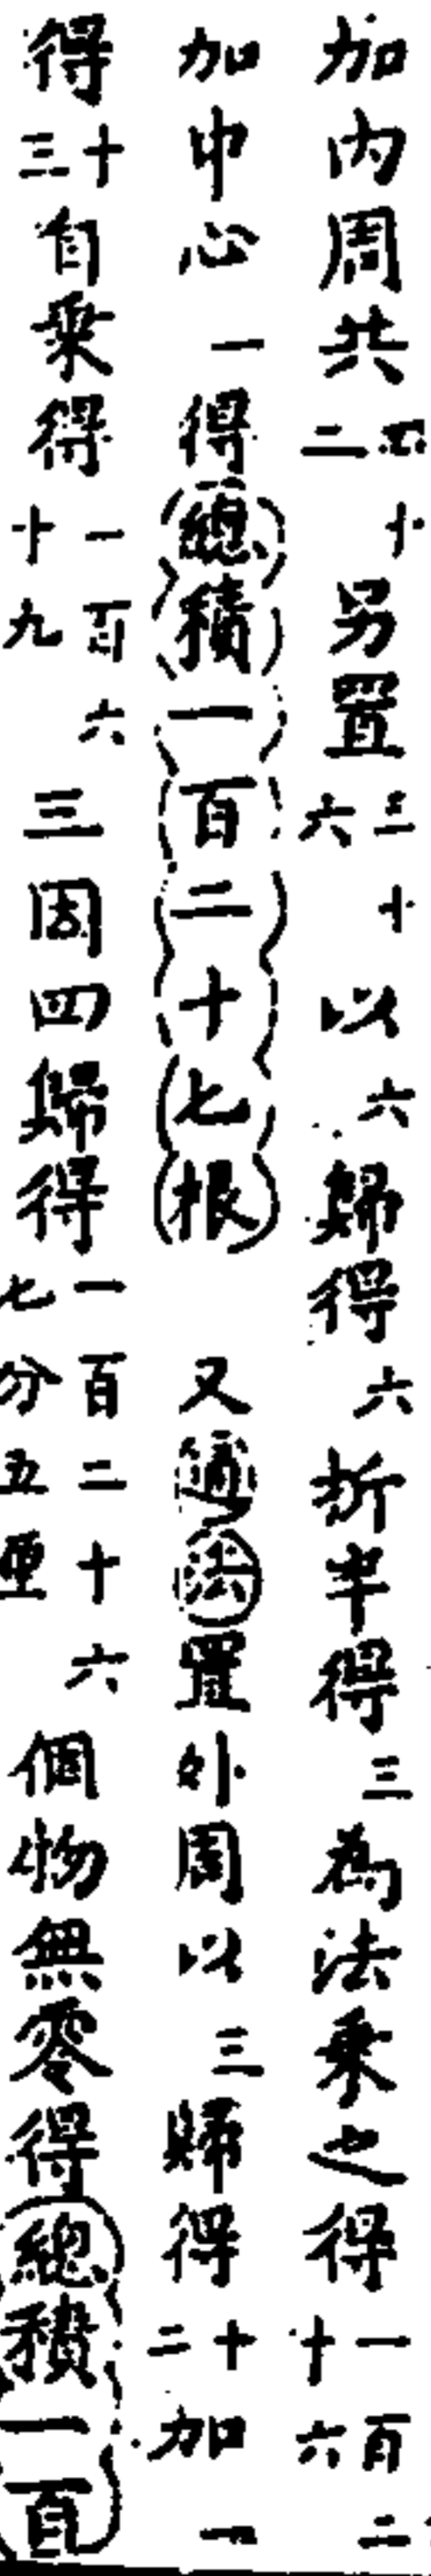 加內周共四十二另置三十六以六歸得六折半得三為法乘之得一百二十六
加中心一得總積一百二十七根 又通法置外周以三歸得十二加一
得十三自乘得一百六十九三因四歸得一百二十六七分五厘個物無零得總積一百